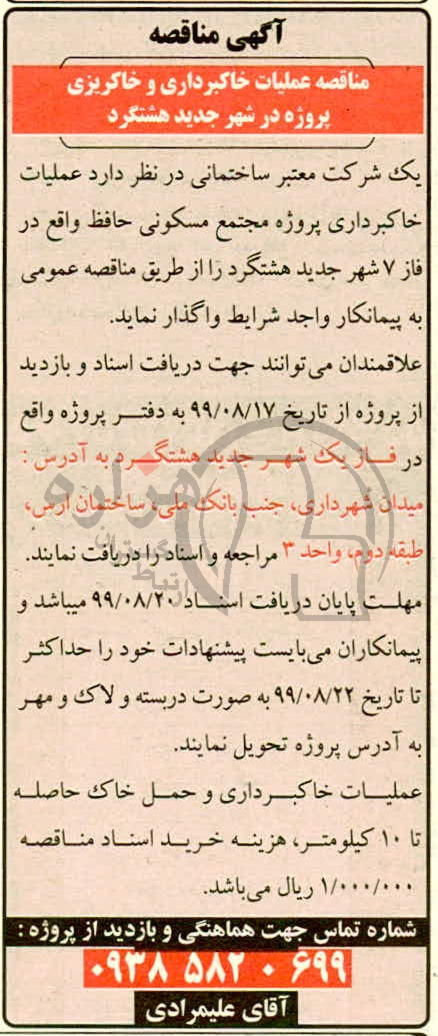 آگهی مناقصه
مناقصه عملیات خاکبرداری و خاکریزی
پروژه در شهر جدید هشتگرد
یک شرکت معتبر ساختمانی در نظر دارد عملیات
خاکبرداری پروژه مجتمع مسکونی حافظ واقع در
فاز ۷ شهر جدید هشتگرد را از طریق مناقصه عمومی
به پیمانکار واجد شرایط واگذار نماید.
علاقمندان می‌توانند جهت دریافت اسناد و بازدید
از پروژه از تاریخ ۹۹/۰۸/۱۷ به دفتر پروژه واقع
در فاز یک شهر جدید هشتگرد به آدرس :
میدان شهرداری، جنب بانک ملی، ساختمان ارس،
طبقه دوم، واحد ۳ مراجعه و اسناد را دریافت نمایند.
مهلت پایان دریافت اسناد ۹۹/۰۸/۲۰ میباشد و
پیمانکاران می‌بایست پیشنهادات خود را حداکثر
تا تاریخ ۹۹/۰۸/۲۲ به صورت دربسته و لاک و مهر
به آدرس پروژه تحویل نمایند.
عملیات خاکبرداری و حمل خاک حاصله
تا ۱۰ کیلومتر، هزینه خرید اسناد مناقصه
۱/۰۰۰/۰۰۰ ریال می‌باشد.
شماره تماس جهت هماهنگی و بازدید از پروژه :
۰۹۳۸ ۵۸۲ ۰ ۶۹۹
آقای علیمرادی
هزاره